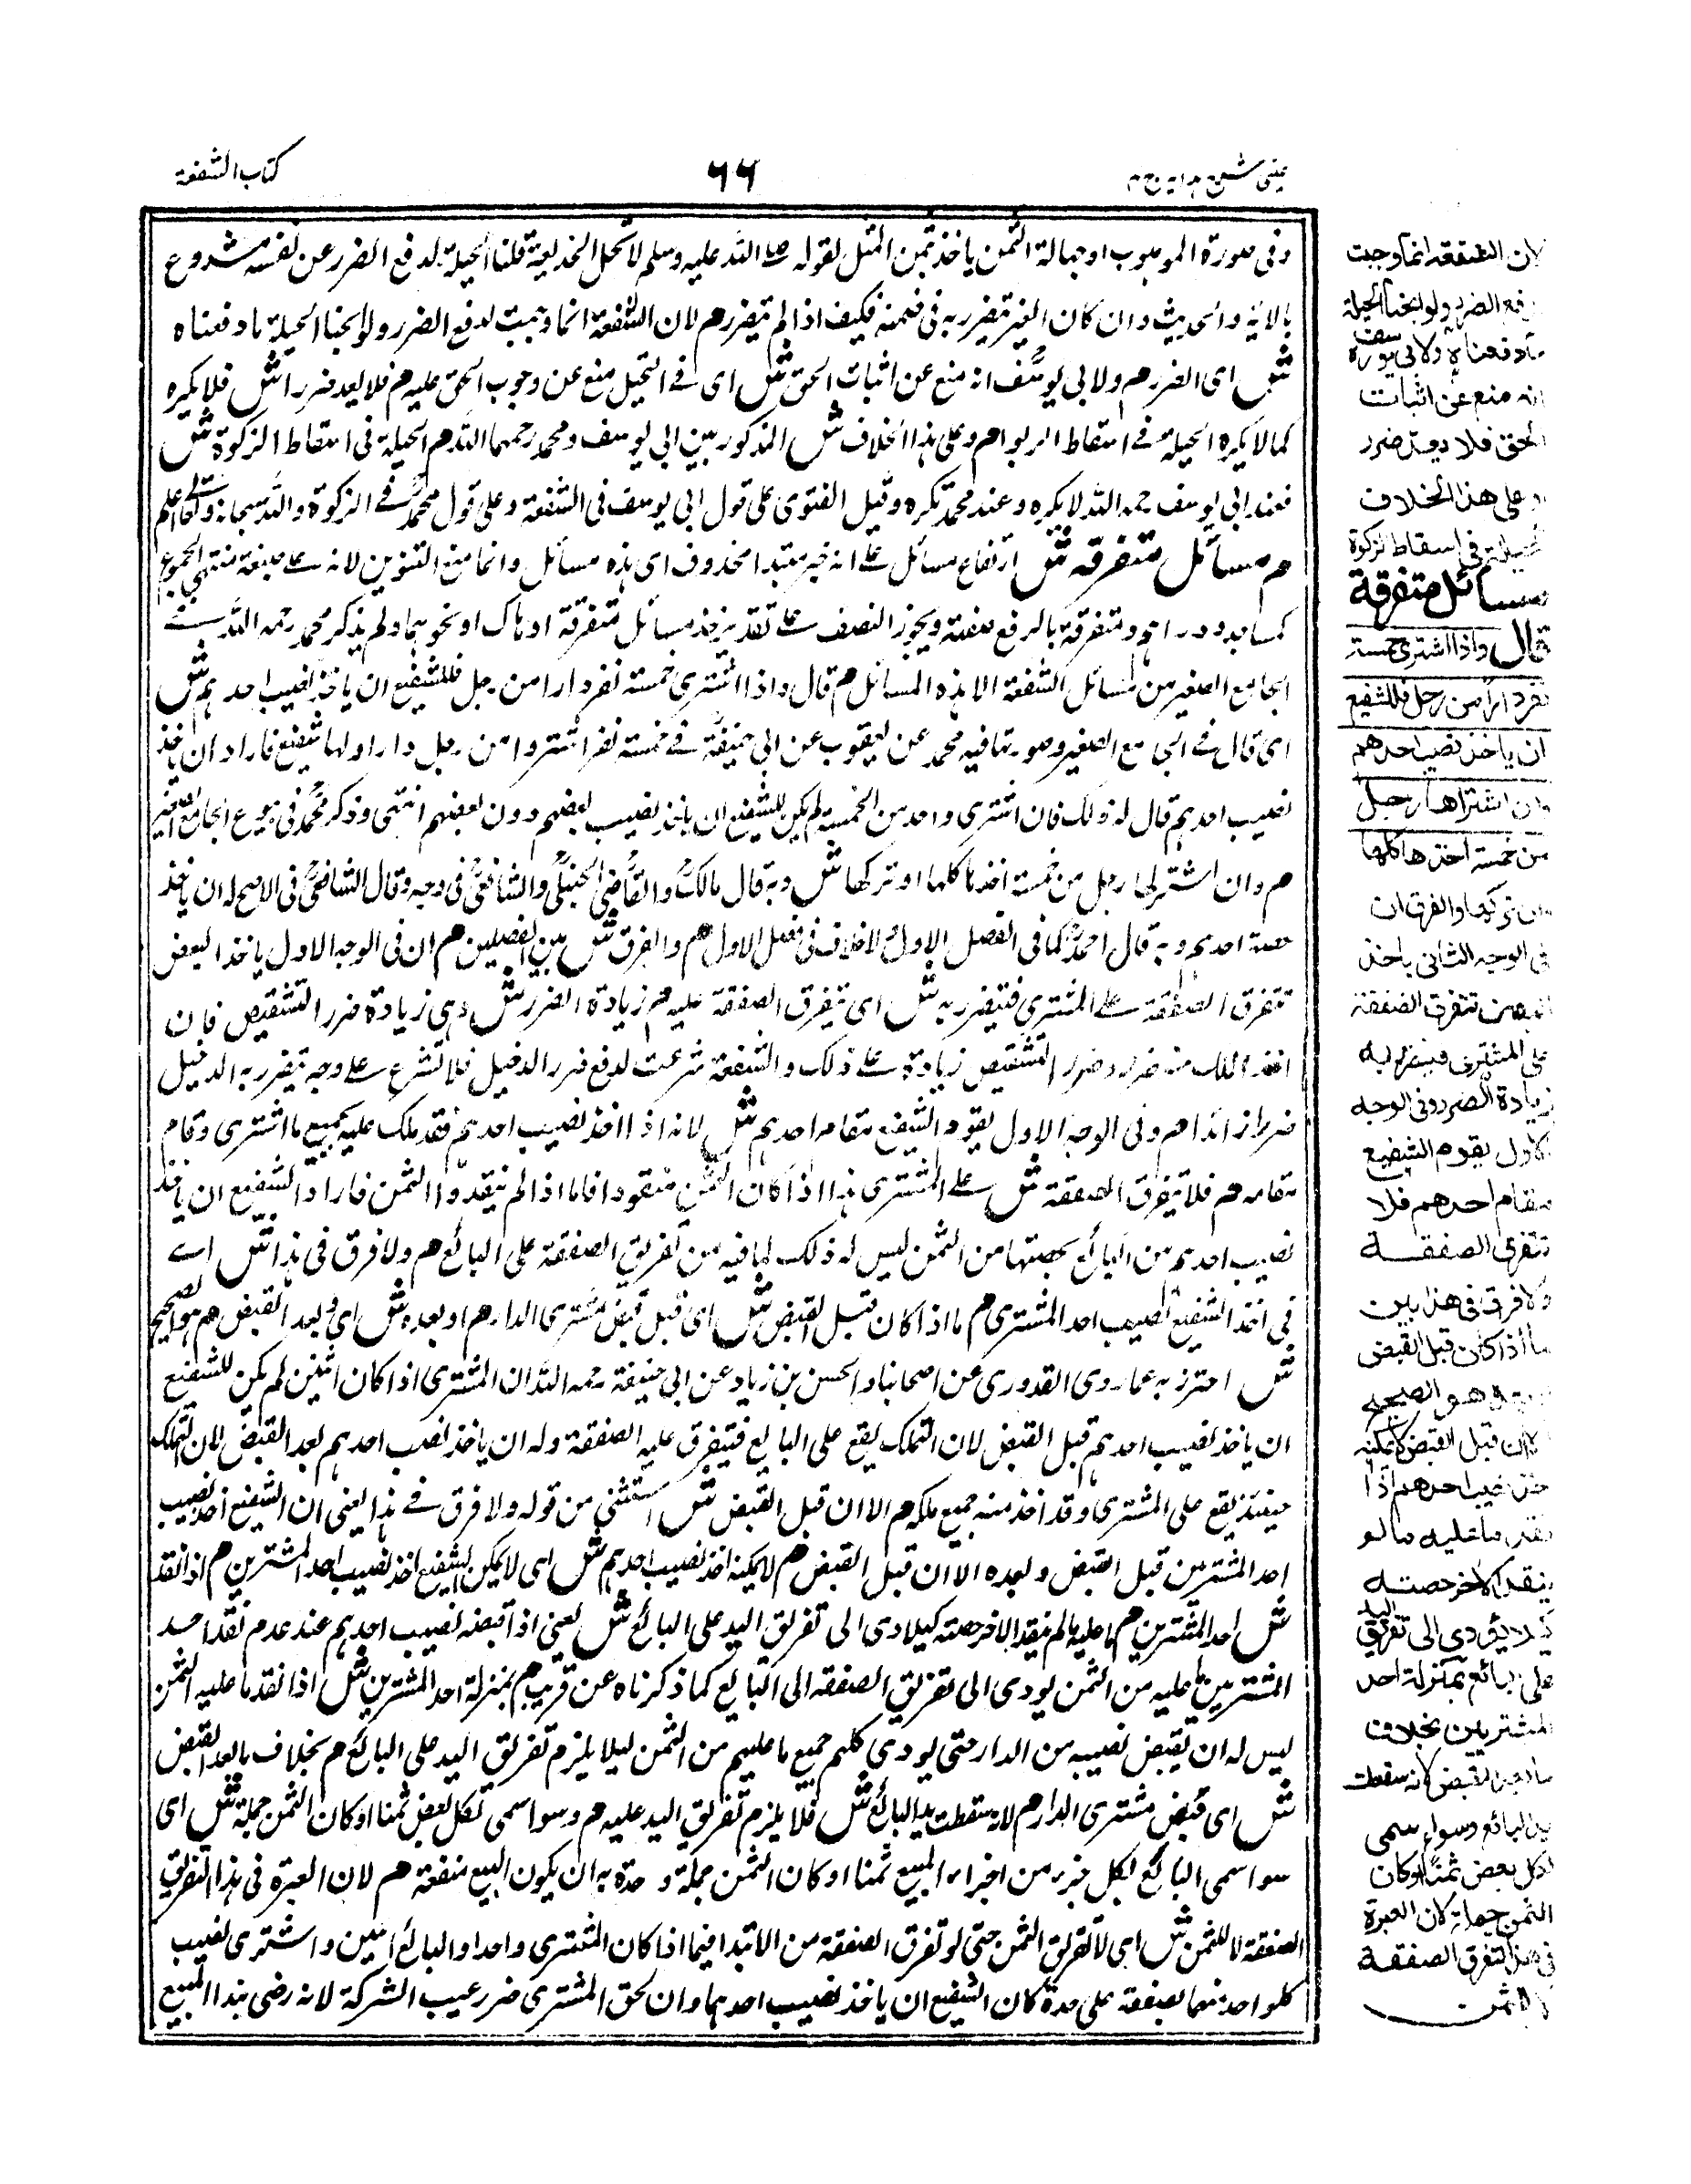 عینی شرح هدایه ج ٤
٦٦
كتاب الشفعة
وفى صورة الموهوب او جهالة الثمن ياخذ بثمن المثل لقوله صلے الله عليه وسلم لا تحل الخديعة قلنا الحيلة لدفع الضرر عن نفسه مشروع
بالآية والحديث وان كان الغير يتضرر به فى ضمنه فكيف اذا لم يتضرر م لان الشفعة انما وجبت لدفع الضرر ولو ابحنا الحيلة ما دفعناه
ش اى الضرر م ولابى يوسف انه منع عن اثبات الحق ش اى فے التحيل منع عن وجوب الحق عليه م فلا يعد ضررا ش فلا يكره
كما لا يكره الحيلة فے اسقاط الربوا م وعلى هذا الخلاف ش المذكور بين ابى يوسف ومحمد رحمهما الله م الحيلة فى اسقاط الزكوة ش
فعند ابى يوسف رحمه الله لا يكره وعند محمد تكره وقيل الفتوى على قول ابى يوسف فى الشفعة وعلى قول محمد فے الزكوة والله سبحانه وتعالى اعلم
م مسائل متفرقة ش ارتفاع مسائل علے انه خبر مبتدا محذوف اى هذه مسائل وانما منع التنوين لانه علے صيغة منتهى الجموع
كمساجد ودراهم ومتفرقة بالرفع صفته ويجوز النصب علے تقدير خذ مسائل متفرقة او هاك او نحوهما ولم يذكر محمد رحمه الله فے
الجامع الصغير من مسائل الشفعة الا هذه المسائل م قال واذا اشترى خمسة نفر دارا من رجل فللشفيع ان ياخذ نصيب احدهم ش
اى قال فے الجامع الصغير وصورتها فيه محمد عن يعقوب عن ابى حنيفة فے خمسة نفر اشتروا من رجل دارا ولها شفيع فاراد ان ياخذ
نصيب احدهم قال له ذلك فان اشترى واحد من الخمسة لم يكن للشفيع ان ياخذ نصيب بعضهم دون بعضهم انتهى وذكر محمد فى بيوع الجامع الصغير
م وان اشتراها رجل من خمسة اخذها كلها او تركها ش وبه قال مالك والقاضى الحنبلى والشافعى فى وجه وقال الشافعى فى الاصح له ان ياخذ
حصة احدهم وبه قال احمد كما فى الفصل الاول لا خلاف فى فصل الاول م والفرق ش بين الفصلين م ان فى الوجه الاول ياخذ البعض
تتفرق الصفقة علے المشترى فيتضرر به ش اى بتفرق الصفقة عليه م زيادة الضرر ش وهى زيادة ضرر التشقيص فان
اخذ الملك منه ضرر وضرر التشقيص زيادة علے ذلك والشفعة شرعت لدفع ضرر الدخيل فلا تشرع علے وجه يتضرر به الدخيل
ضررا زائدا م وفى الوجه الاول يقوم الشفيع مقام احدهم ش لانه اذا اخذ نصيب احدهم فقد ملك عليه جميع ما اشترى وقام
مقامه م فلا تتفرق الصفقة ش علے المشترى هذا اذا كان الثمن منقودا فاما اذا لم ينقدوا الثمن فاراد الشفيع ان ياخذ
نصيب احدهم من البائع بحصتها من الثمن ليس له ذلك لما فيه من تفريق الصفقة على البائع م ولا فرق فى هذا ش اے
فى اخذ الشفيع نصيب احد المشترى م ما اذا كان قبل القبض ش اى قبل قبض مشترى الدار م او بعده ش اى وبعد القبض م هو الصحيح
ش احترز به عما روى القدورى عن اصحابنا والحسن بن زياد عن ابى حنيفة رحمه الله ان المشترى اذا كان اثنين لم يكن للشفيع
ان ياخذ نصيب احدهم قبل القبض لان التملك يقع على البايع فتتفرق عليه الصفقة وله ان ياخذ نصيب احدهم بعد القبض لان التملك
حينئذ يقع على المشترى وقد اخذ منه جميع ملكه م الا ان قبل القبض ش استثنى من قوله ولا فرق فے هذا يعنى ان الشفيع اخذ نصيب
احد المشترين قبل القبض وبعده الا ان قبل القبض م لا يمكنه اخذ نصيب احدهم ش اى لا يمكن الشفيع اخذ نصيب احد المشترين م اذا نقد
ش احد المشترين م ما عليه ما لم ينقد الاخر حصته كيلا يؤدى الى تفريق اليد على البائع ش يعنى اذا قبضه نصيب احدهم عند عدم نقد احد
المشتريين ما عليه من الثمن يودى الى تفريق الصفقة الى البايع كما ذكرناه عن قريب م بمنزلة احد المشترين ش اذا نقد ما عليه الثمن
ليس له ان يقبض نصيبه من الدار حتى يودى كلهم جميع ما عليهم من الثمن ليلا يلزم تفريق اليد على البائع م بخلاف ما بعد القبض
ش اى قبض مشترى الدار م لانه سقطت يد البائع ش فلا يلزم تفريق اليد عليه م وسوا سمى لكل بعض ثمنا او كان الثمن جملة ش اى
سوا سمى البائع لكل جزء من اجزاء المبيع ثمنا او كان الثمن جملة وحده به ان يكون البيع صفقة م لان العبرة فى هذا التفريق
الصفقة لا للثمن ش اى لا تفريق الثمن حتى لو تفرق الصفقة من الابتدا فيما اذا كان المشترى واحدا والبائع اثنين واشترى نصيب
كل واحد منهما بصفقة على حدة كان الشفيع ان ياخذ نصيب احدهما وان لحق المشترى ضرر عيب الشركة لانه رضى بهذا المبيع
لان الشفعة انما وجبت
لدفع الضرر ولو ابحنا الحيلة
ما دفعناه ولابى يوسف
انه منع عن اثبات
الحق فلا يعد ضرر
وعلى هذا الخلاف
الحيلة فى اسقاط الزكوة
مسائل متفرقة
قال واذا اشترى خمسة
نفر دارا من رجل فللشفيع
ان ياخذ نصيب احدهم
وان اشتراها رجل
من خمسة اخذها كلها
او تركها والفرق ان
فى الوجه الثانى ياخذ
البعض تتفرق الصفقة
على المشترى فيتضرر به
زيادة الضرر وفى الوجه
الاول يقوم الشفيع
مقام احدهم فلا
تتفرق الصفقة
ولا فرق فى هذا بين
ما اذا كان قبل القبض
او بعده هو الصحيح
الا ان قبل القبض لا يمكنه
اخذ نصيب احدهم اذا
نقد ما عليه ما لم
ينقد الاخر حصته
كيلا يؤدى الى تفريق اليد
على البائع بمنزلة احد
المشتريين بخلاف
ما بعد القبض لانه سقطت
يد البائع وسواء سمى
لكل بعض ثمنا او كان
الثمن جملة لان العبرة
فى هذا لتفرق الصفقة
لا الثمن